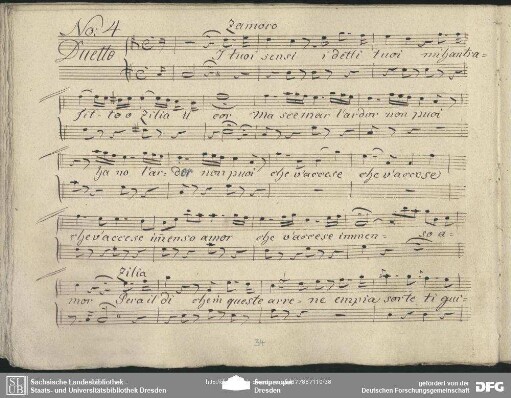 No: 4
Duetto
Zamoro
I tuoi sensi i detti tuoi mi han tra-
fit-to o Zilia il cor ma scemar l'ardor non puoi
ha no l'ar-dor non puoi che v'accese che v'accese
che v'accese immenso amor che v'accese immen- so a-
Zilia
mor Pera il dì che in queste arre-ne empia sorte ti gui-
34
SLUB
Sächsische Landesbibliothek
Staats- und Universitätsbibliothek Dresden
gefördert von der
Deutschen Forschungsgemeinschaft
DFG